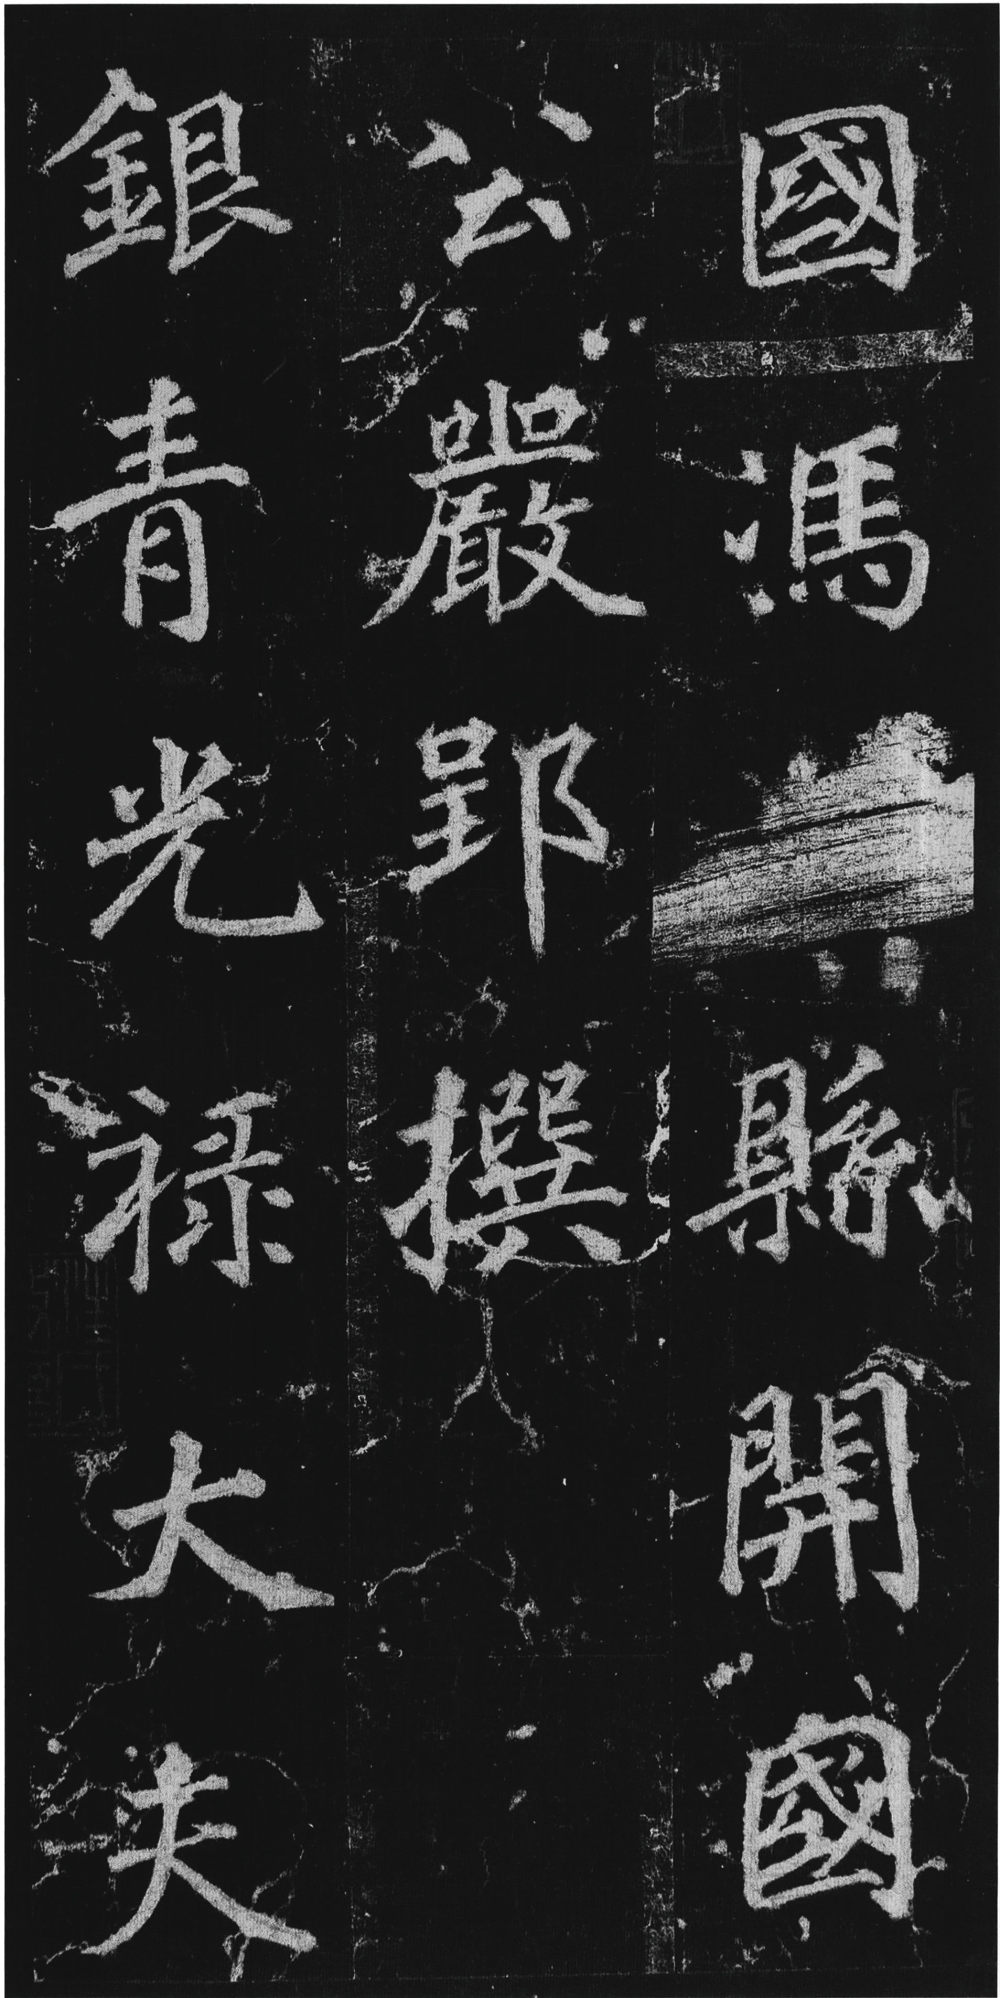 國馮縣開國
公嚴郢撰
銀青光禄大夫